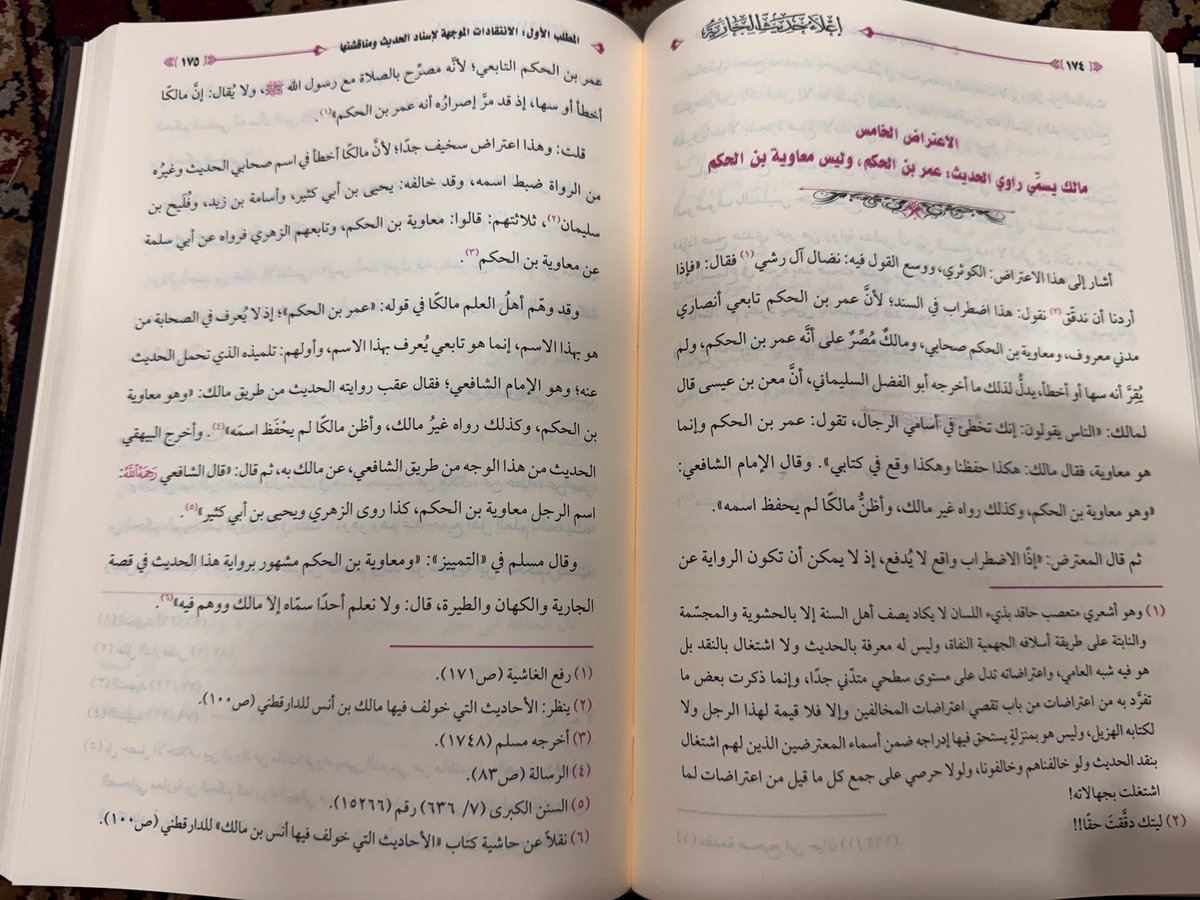 إعلاء حديث الجارية
١٧٤
الاعتراض الخامس
مالك يسمِّي راوي الحديث؛ عمر بن الحكم، وليس معاوية بن الحكم
أشار إلى هذا الاعتراض: الكوثري، ووسع القول فيه: نضال آل رشي(١) فقال: «فإذا
أردنا أن ندقّق(٢) نقول: هذا اضطراب في السند؛ لأنَّ عمر بن الحكم تابعي أنصاري
مدني معروف، ومعاوية بن الحكم صحابي، ومالكٌ مُصِّرٌ على أنَّه عمر بن الحكم، ولم
يُقِرَّ أنه سها أو أخطأ، يدلُّ لذلك ما أخرجه أبو الفضل السليماني، أنَّ معن بن عيسى قال
لمالك: «الناس يقولون: إنك تخطئ في أسامي الرجال، تقول: عمر بن الحكم وإنما
هو معاوية، فقال مالك: هكذا حفظنا وهكذا وقع في كتابي». وقال الإمام الشافعي:
«وهو معاوية بن الحكم، وكذلك رواه غير مالك، وأظنُّ مالكًا لم يحفظ اسمه».
ثم قال المعترض: «إذًا الاضطراب واقع لا يُدفع، إذ لا يمكن أن تكون الرواية عن
(١) وهو أشعري متعصب حاقد بذيء اللسان لا يكاد يصف أهل السنة إلا بالحشوية والمجسّمة
والنابتة على طريقة أسلافه الجهمية النفاة، وليس له معرفة بالحديث ولا اشتغال بالنقد بل
هو فيه شبه العامي، واعتراضاته تدل على مستوى سطحي متدّني جدًا، وإنما ذكرت بعض ما
تفرَّد به من اعتراضات من باب تقصي اعتراضات المخالفين وإلا فلا قيمة لهذا الرجل ولا
لكتابه الهزيل، وليس هو بمنزلةٍ يستحق فيها إدراجه ضمن أسماء المعترضين الذين لهم اشتغال
بنقد الحديث ولو خالفناهم وخالفونا، ولولا حرصي على جمع كل ما قيل من اعتراضات لما
اشتغلت بجهالاته!
(٢) ليتك دقَّقتَ حقًا!!!
المطلب الأول: الانتقادات الموجهة لإسناد الحديث ومناقشتها
١٧٥
عمر بن الحكم التابعي؛ لأنَّه مصرّح بالصلاة مع رسول الله ﷺ، ولا يُقال: إنَّ مالكًا
أخطأ أو سها، إذ قد مرَّ إصرارُه أنه عمر بن الحكم»(١).
قلت: وهذا اعتراض سخيف جدًا؛ لأنَّ مالكًا أخطأ في اسم صحابي الحديث وغيرُه
من الرواة ضبط اسمه، وقد خالفه: يحيى بن أبي كثير، وأسامة بن زيد، وفُليح بن
سليمان(٢)، ثلاثتهم: قالوا: معاوية بن الحكم، وتابعهم الزهري فرواه عن أبي سلمة
عن معاوية بن الحكم(٣).
وقد وهّم أهلُ العلم مالكًا في قوله: «عمر بن الحكم»؛ إذ لا يُعرف في الصحابة من
هو بهذا الاسم، إنما هو تابعي يُعرف بهذا الاسم، وأولهم: تلميذه الذي تحمل الحديث
عنه؛ وهو الإمام الشافعي؛ فقال عقب روايته الحديث من طريق مالك: «وهو معاوية
بن الحكم، وكذلك رواه غيرُ مالك، وأظن مالكًا لم يحْفَظ اسمَه»(٤). وأخرج البيهقي
الحديث من هذا الوجه من طريق الشافعي، عن مالك به، ثم قال: «قال الشافعي رَحِمَهُ ٱللَّهُ:
اسم الرجل معاوية بن الحكم، كذا روى الزهري ويحيى بن أبي كثير»(٥).
وقال مسلم في «التمييز»: «ومعاوية بن الحكم مشهور برواية هذا الحديث في قصة
الجارية والكهان والطيرة، قال: ولا نعلم أحدًا سمّاه إلا مالك ووهم فيه»(٦).
(١) رفع الغاشية (ص١٧١).
(٢) ينظر: الأحاديث التي خولف فيها مالك بن أنس للدارقطني (ص١٠٠).
(٣) أخرجه مسلم (١٧٤٨).
(٤) الرسالة (ص٨٣).
(٥) السنن الكبرى (٧/ ٦٣٦) رقم (١٥٢٦٦).
(٦) نقلاً عن حاشية كتاب «الأحاديث التي خولف فيها أنس بن مالك» للدارقطني (ص١٠٠).